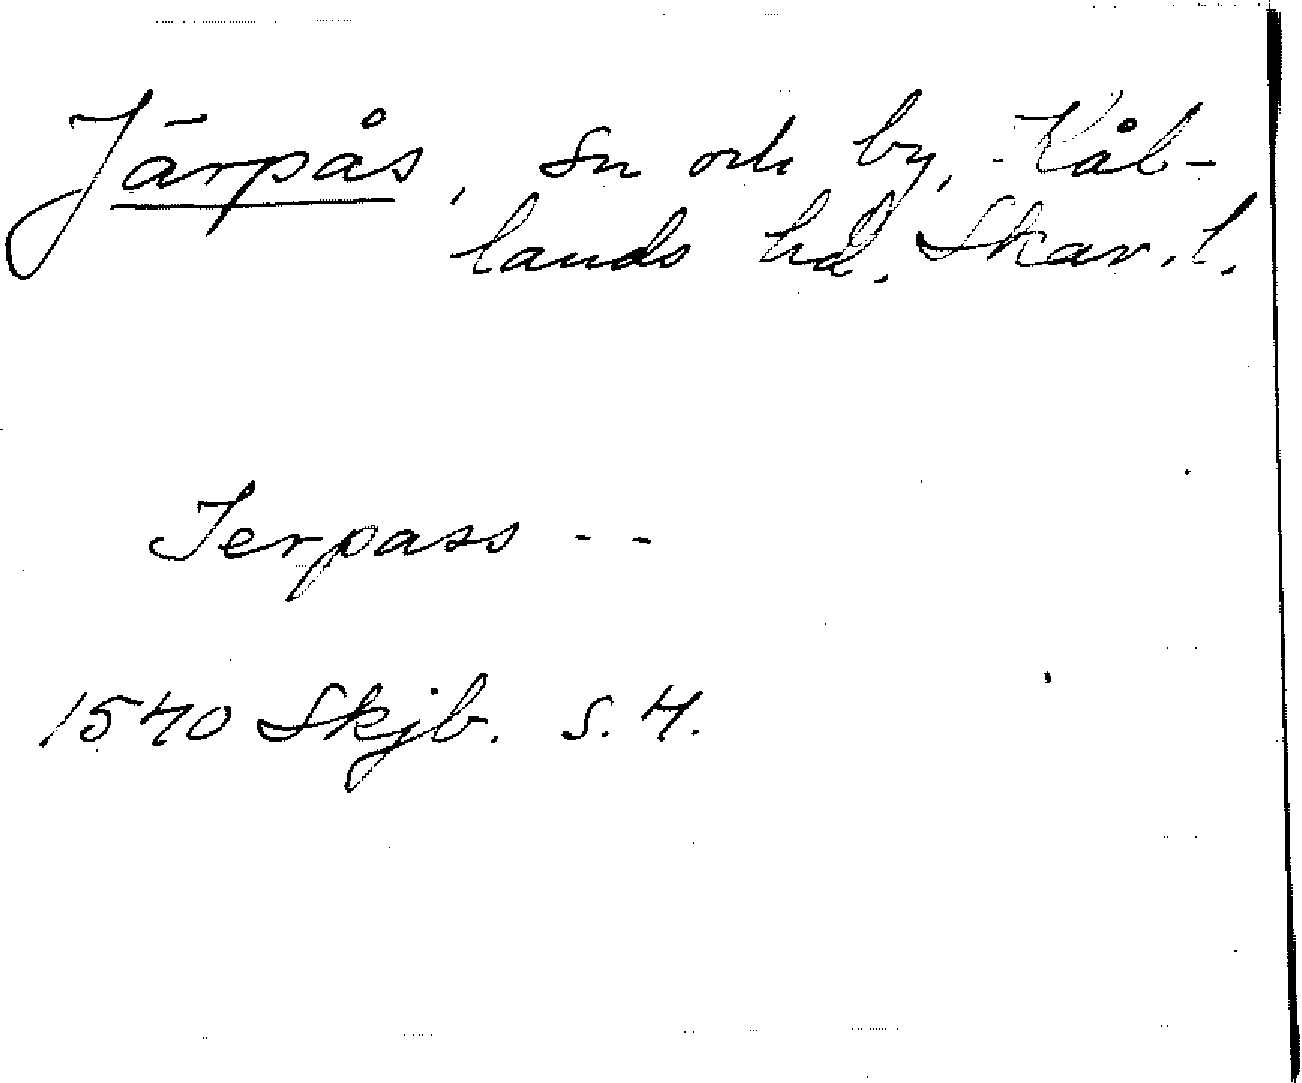 Järpås, sn och by, Kål-
lands hd. Skar. l.
Jerpass - -
1540 Skjb. s. 4.